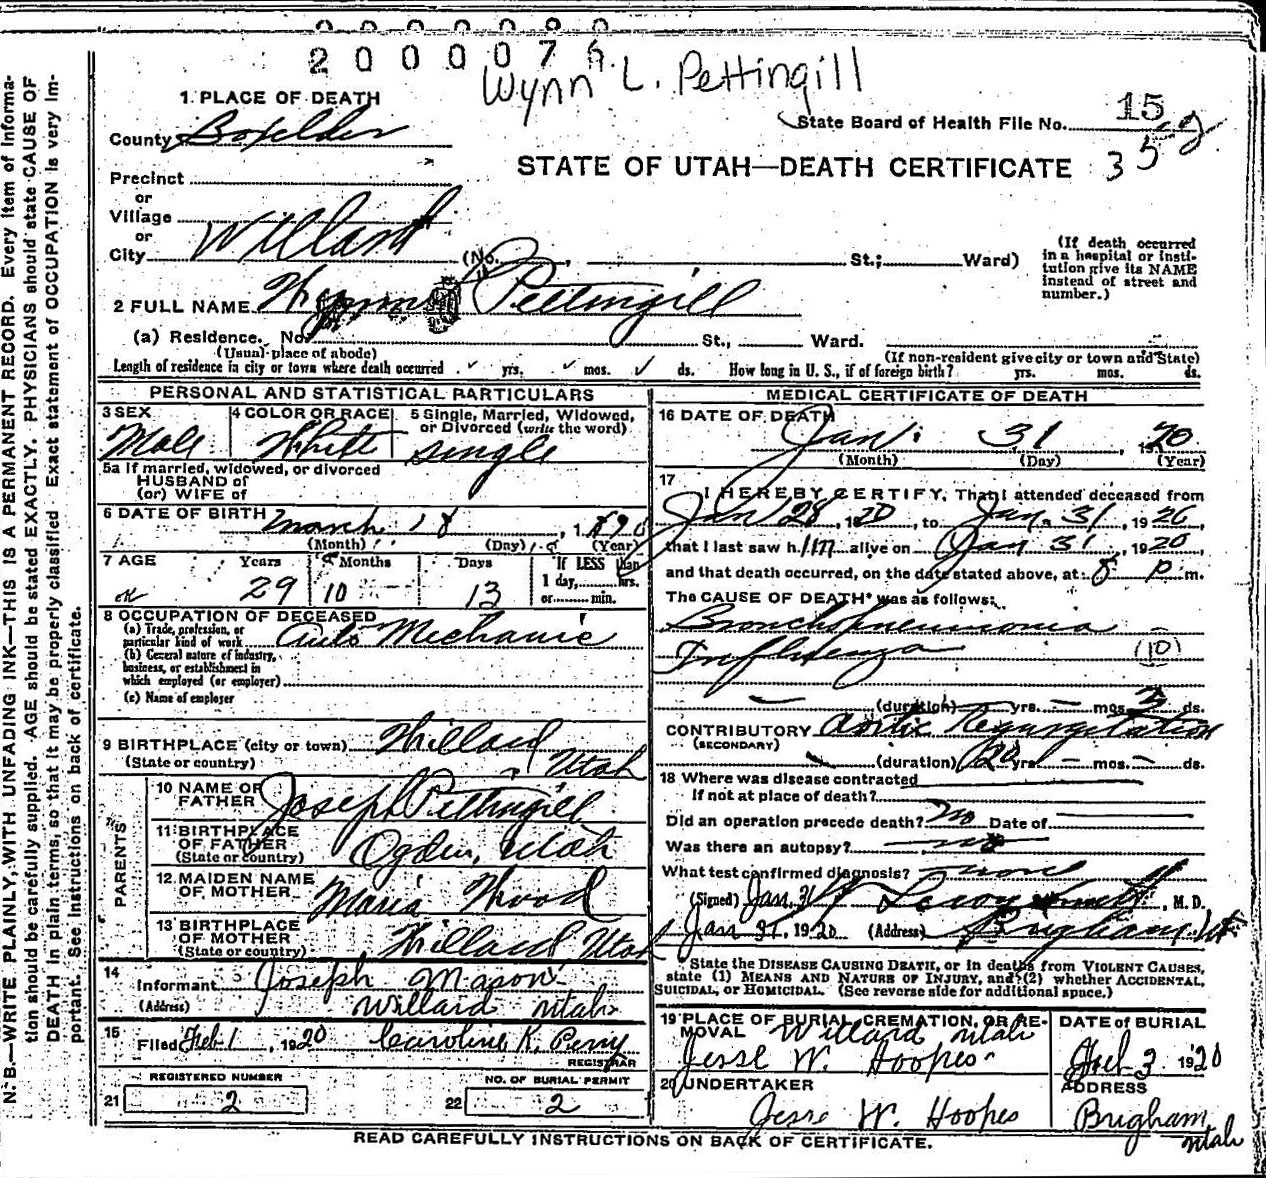 2000076
Wynn L. Pettingill
1. PLACE OF DEATH
County Boxelder
State Board of Health File No. 15
352
STATE OF UTAH—DEATH CERTIFICATE
Precinct
or
Village
or
City Willard (No. , St.; Ward)
(If death occurred in a hospital or institution give its NAME instead of street and number.)
2 FULL NAME Wynn L Pettingill
(a) Residence. No. St., Ward.
(Usual place of abode) (If non-resident give city or town and State)
Length of residence in city or town where death occurred yrs. mos. ds. How long in U. S., if of foreign birth? yrs. mos. ds.
PERSONAL AND STATISTICAL PARTICULARS
3 SEX Male
4 COLOR OR RACE White
5 Single, Married, Widowed, or Divorced (write the word) single
5a If married, widowed, or divorced
HUSBAND of
(or) WIFE of
6 DATE OF BIRTH March 18, 1890
(Month) (Day) (Year)
7 AGE Years Months Days If LESS than
29 10 13 1 day, hrs.
or min.
8 OCCUPATION OF DECEASED
(a) Trade, profession, or particular kind of work Auto Mechanic
(b) General nature of industry, business, or establishment in which employed (or employer)
(c) Name of employer
9 BIRTHPLACE (city or town) Willard
(State or country) Utah
PARENTS
10 NAME OF FATHER Joseph Pettingill
11 BIRTHPLACE OF FATHER (State or country) Ogden, Utah
12 MAIDEN NAME OF MOTHER Maria Wood
13 BIRTHPLACE OF MOTHER (State or country) Willard Utah
14 Informant Joseph Mason
(Address) Willard Utah
15 Filed Feb 1, 1920 Caroline K. Perry
REGISTRAR
REGISTERED NUMBER NO. OF BURIAL PERMIT
21 2 22 2
MEDICAL CERTIFICATE OF DEATH
16 DATE OF DEATH
Jan. 31, 1920
(Month) (Day) (Year)
17 I HEREBY CERTIFY, That I attended deceased from
Jan 28, 1920, to Jan 31, 1920,
that I last saw him alive on Jan 31, 1920
and that death occurred, on the date stated above, at 8 p m.
The CAUSE OF DEATH was as follows:
Bronchopneumonia
Influenza (10)
(duration) yrs. mos. 3 ds.
CONTRIBUTORY Aortic Regurgitation
(SECONDARY)
(duration) 20 yrs. mos. ds.
18 Where was disease contracted
If not at place of death?
Did an operation precede death? no Date of
Was there an autopsy? no
What test confirmed diagnosis? none
(Signed) Jan. 31 , M. D.
Jan 31, 1920 (Address) Brigham Ut
State the DISEASE CAUSING DEATH, or in deaths from VIOLENT CAUSES,
state (1) MEANS AND NATURE OF INJURY, and (2) whether ACCIDENTAL,
SUICIDAL, OR HOMICIDAL. (See reverse side for additional space.)
19 PLACE OF BURIAL, CREMATION, OR REMOVAL Willard Utah
Jesse W. Hoopes
DATE of BURIAL
Feb 3 1920
20 UNDERTAKER
Jesse W. Hoopes
ADDRESS
Brigham, Utah
READ CAREFULLY INSTRUCTIONS ON BACK OF CERTIFICATE.
N. B.—WRITE PLAINLY, WITH UNFADING INK—THIS IS A PERMANENT RECORD. Every item of information should be carefully supplied. AGE should be stated EXACTLY. PHYSICIANS should state CAUSE OF DEATH in plain terms, so that it may be properly classified. Exact statement of OCCUPATION is very important. See instructions on back of certificate.